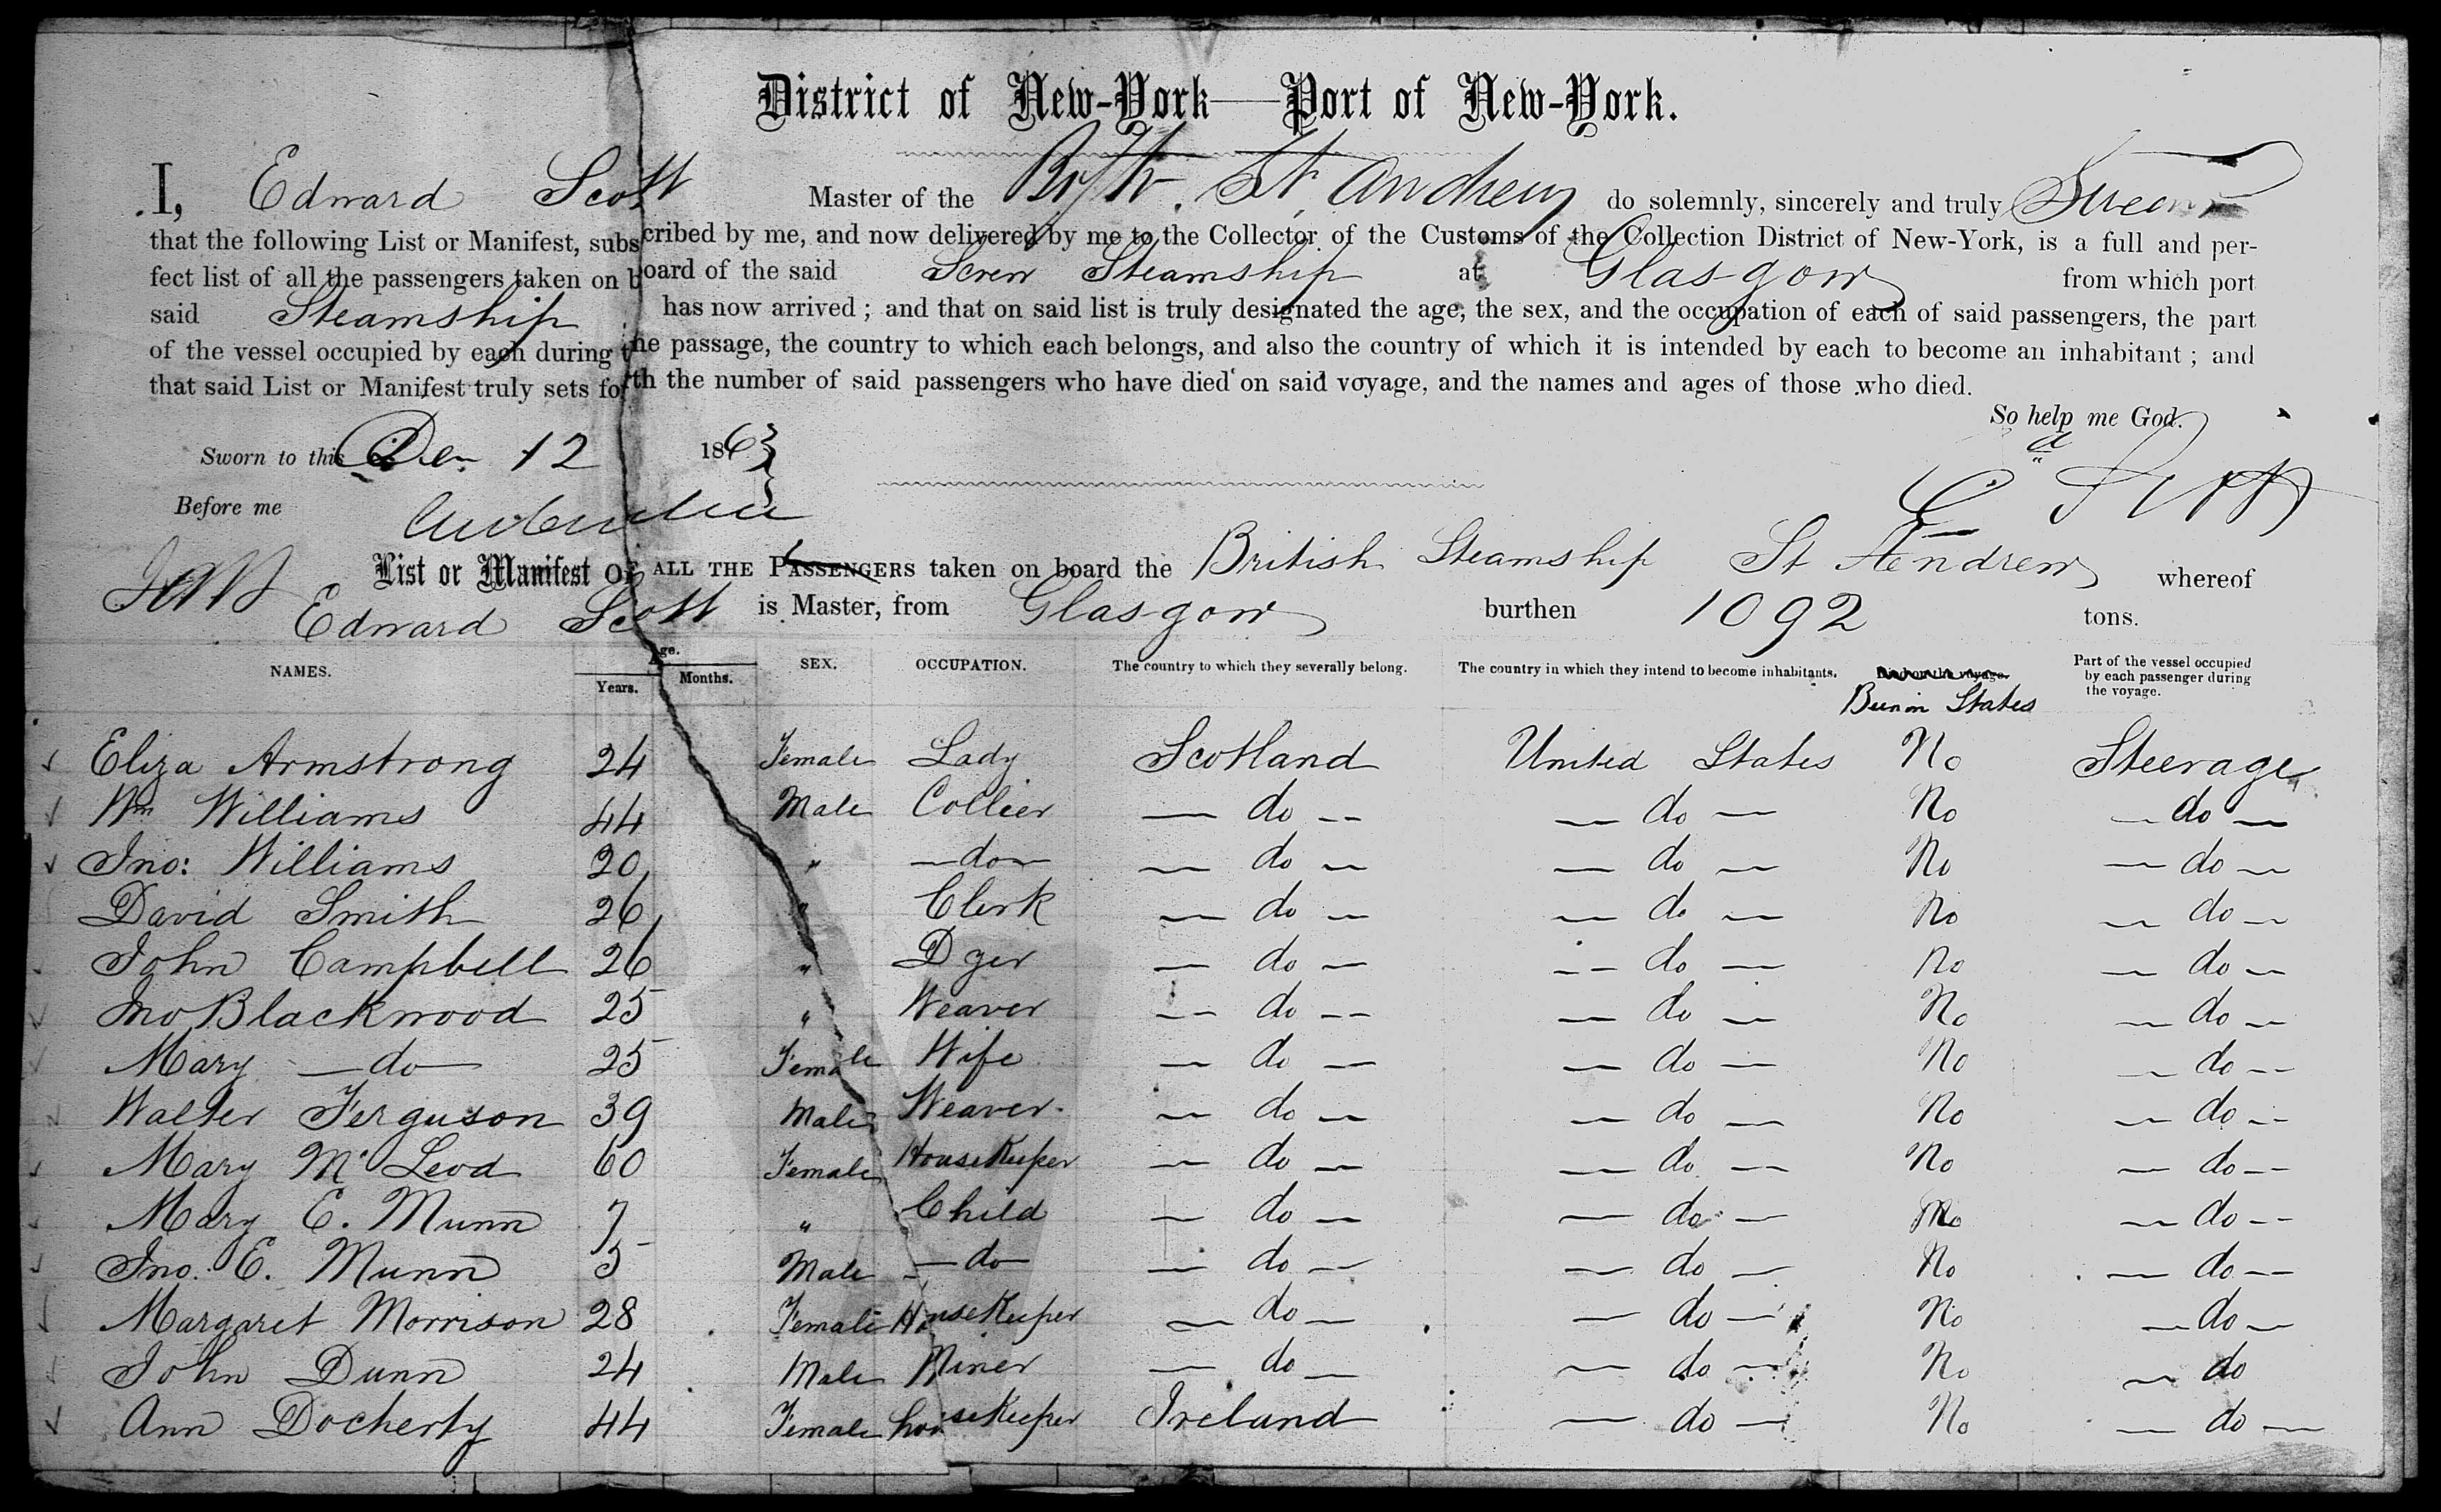 District of New-York—Port of New-York.
I, Edward Scott Master of the Br Str. St. Andrew do solemnly, sincerely and truly Swear
that the following List or Manifest, subscribed by me, and now delivered by me to the Collector of the Customs of the Collection District of New-York, is a full and per-
fect list of all the passengers taken on board of the said Screw Steamship at Glasgow from which port
said Steamship has now arrived; and that on said list is truly designated the age, the sex, and the occupation of each of said passengers, the part
of the vessel occupied by each during the passage, the country to which each belongs, and also the country of which it is intended by each to become an inhabitant; and
that said List or Manifest truly sets forth the number of said passengers who have died on said voyage, and the names and ages of those who died.
So help me God.
Sworn to this Dec 12 1863
E Scott
Before me
List or Manifest OF ALL THE PASSENGERS taken on board the British Steamship St Andrew whereof
Edward Scott is Master, from Glasgow burthen 1092 tons.
NAMES. Age. Years. Months. SEX. OCCUPATION. The country to which they severally belong. The country in which they intend to become inhabitants. Died on the voyage. Been in States Part of the vessel occupied by each passenger during the voyage.
Eliza Armstrong 24 Female Lady Scotland United States No Steerage
Wm Williams 44 Male Collier — do — — do — No — do —
Jno: Williams 20 " — do — — do — — do — No — do —
David Smith 26 " Clerk — do — — do — No — do —
John Campbell 26 " Dyer — do — — do — No — do —
Jno Blackwood 25 " Weaver — do — — do — No — do —
Mary — do — 25 Female Wife — do — — do — No — do —
Walter Ferguson 39 Male Weaver. — do — — do — No — do —
Mary McLeod 60 Female HouseKeeper — do — — do — No — do —
Mary E. Munn 7 " Child — do — — do — No — do —
Jno. E. Munn 5 Male — do — — do — — do — No — do —
Margaret Morrison 28 Female HouseKeeper — do — — do — No — do —
John Dunn 24 Male Miner — do — — do — No — do
Ann Docherty 44 Female houseKeeper Ireland — do — No — do —